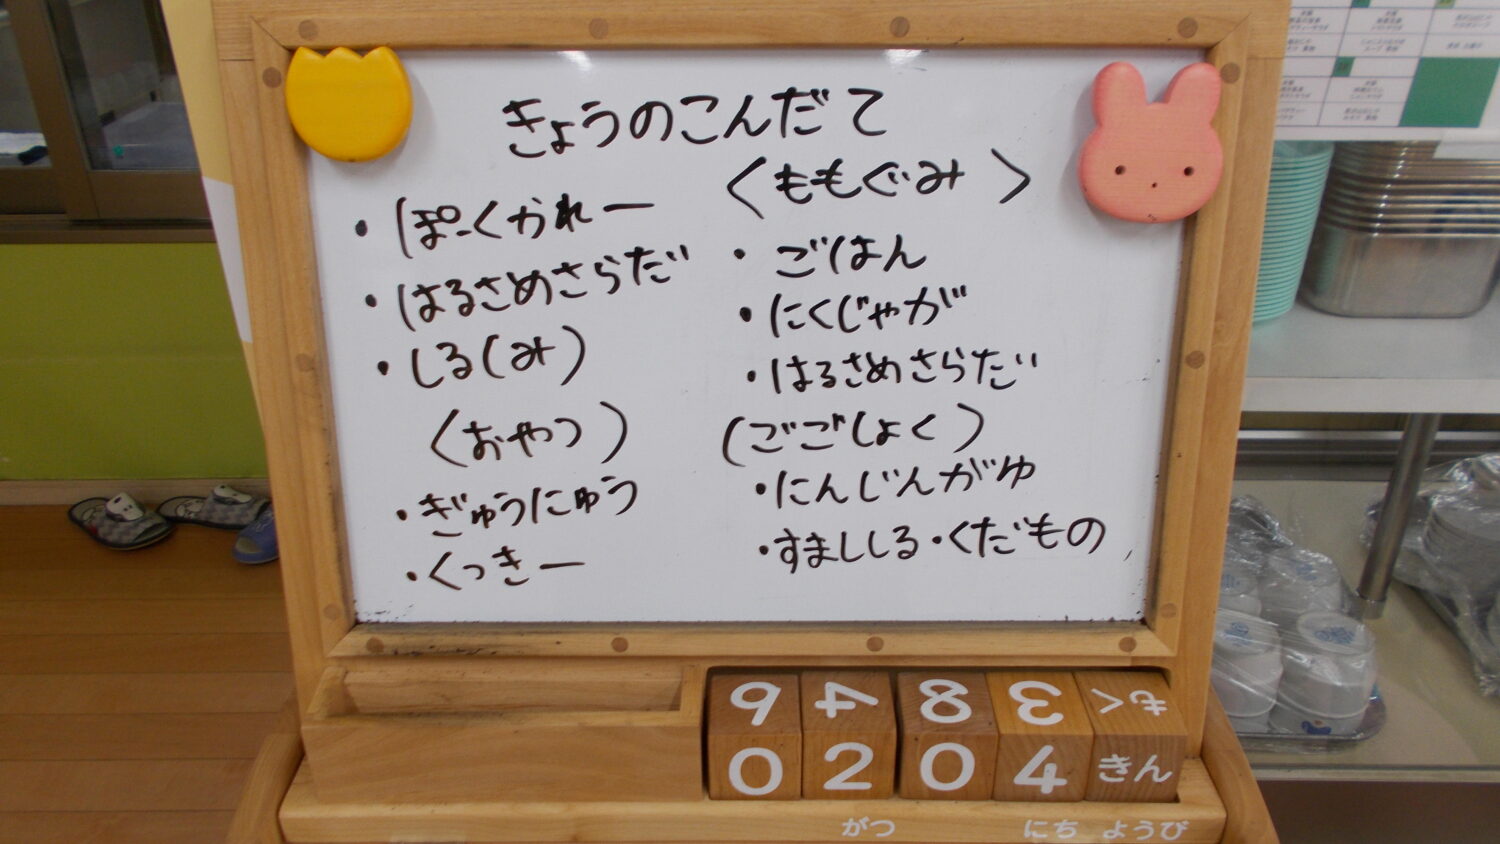 きょうのこんだて
・ぽーくかれー
・はるさめさらだ
・しる(み)
〈おやつ〉
・ぎゅうにゅう
・くっきー
〈ももぐみ〉
・ごはん
・にくじゃが
・はるさめさらだ
(ごごしょく)
・にんじんがゆ
・すまししる・くだもの
6 4 8 3 もく
0 2 0 4 きん
がつ にち ようび